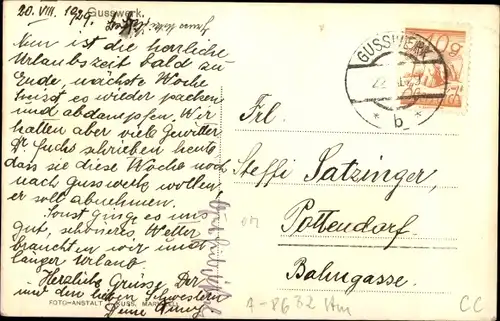 20. VIII. 1929. Gusswerk.
Nun ist die herrliche
Urlaubszeit bald zu
Ende, nächste Woche
heisst es wieder packen
und abdampfen. Wir
hatten aber viele Gewitter
Dr. Fuchs schrieben heute
dass sie diese Woche noch
nach Gusswerk wollen,
er soll abnehmen.
Sonst ginge es uns
gut, schöneres Wetter
brauchten wir und
länger Urlaub.
Herzliche Grüsse Dir
und den lieben Schwestern
Deine
FOTO-ANSTALT KUSS, MARIAZELL
GUSSWERK
* b *
10 g
Frl.
Steffi Satzinger,
Pottendorf
Bahngasse.
A-8632
CC